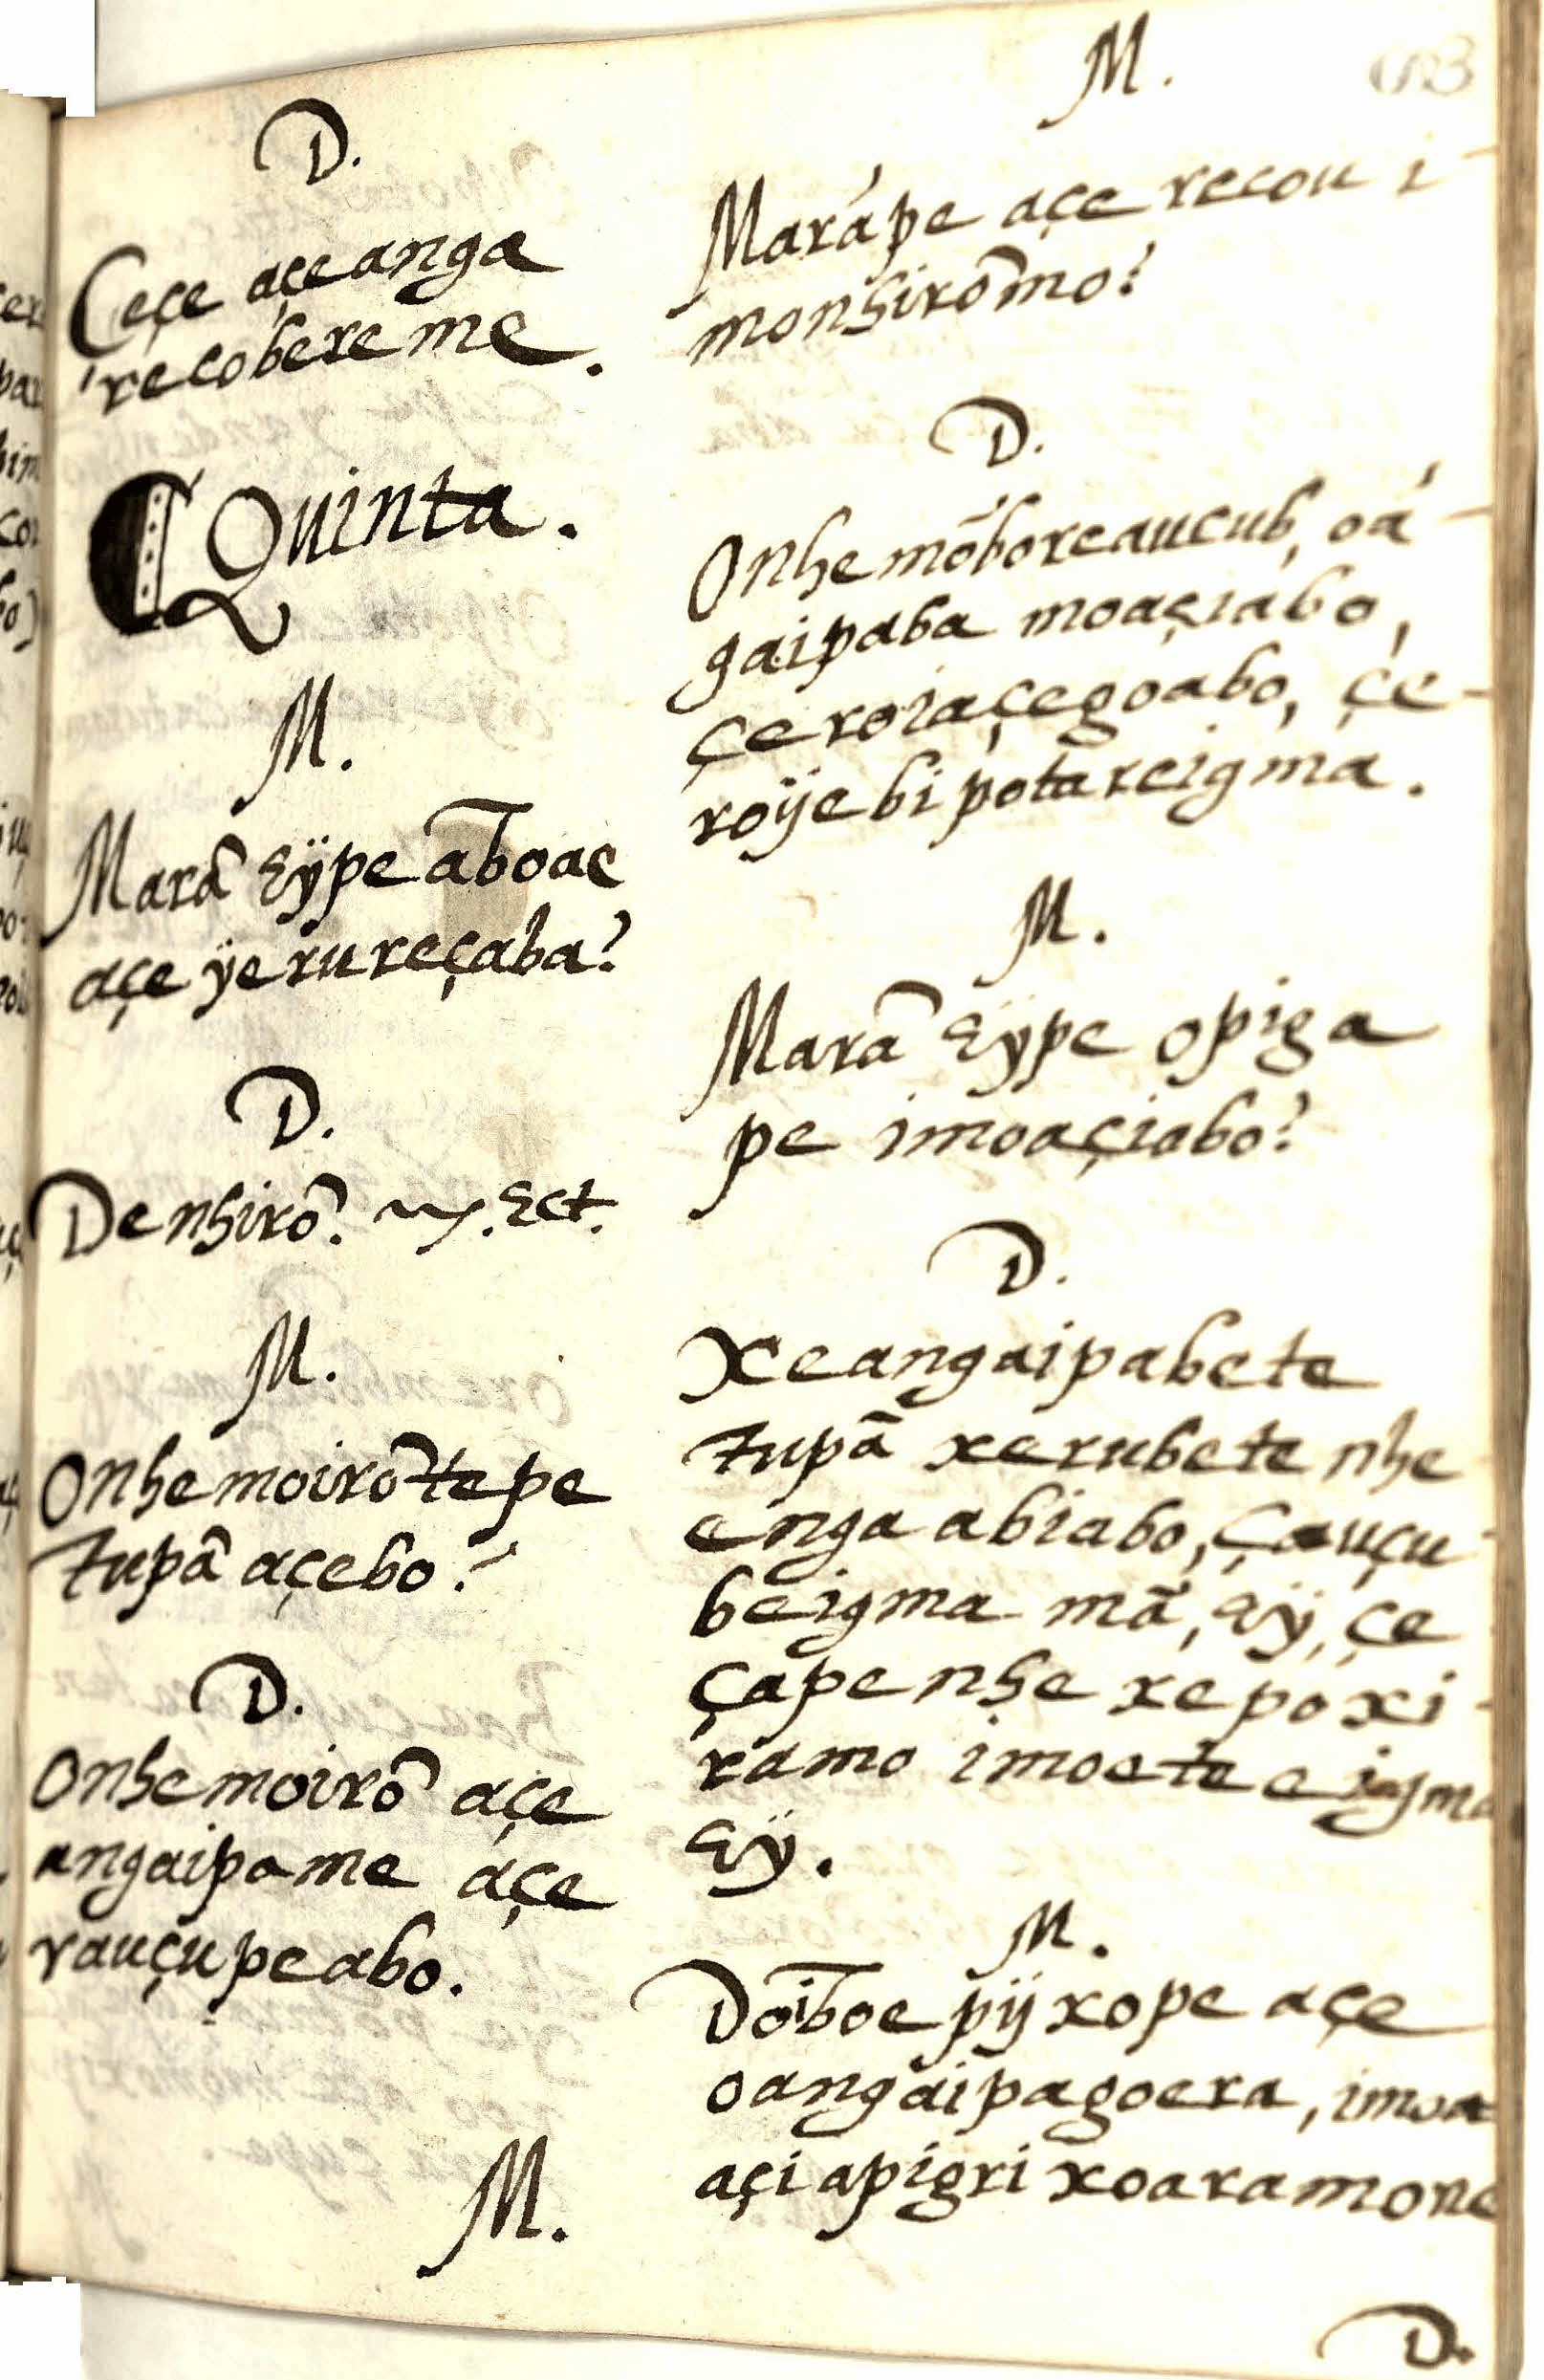 D.
Ceçe açeanga
recobereme.
Quinta.
M.
Marã eÿpe aboae
açe ÿerureçaba?
D.
Denhirõ. Ect.
M.
Onhemoirõtepe
tupã açebo?
D.
Onhemoirõ açe
angaipame açe
rauçupeabo.
M.
M.
Marápe açe recou i-
monhirõmo?
D.
Onhemõboreaucub, oá-
gaipaba moaçiabo,
çeroiaçegoabo, çe-
roÿebipotareigma.
M.
Marã eÿpe opiga
pe imoaçiabo?
D.
Xeangaipabete
tupã xerubete nhe
enga abiabo, çauçu-
beigma mã, eÿ, çe
çape nhe xepoxi-
ramo imoeteeigma
eÿ.
M.
Doiboe pÿxope açe
oangaipagoera, imoa
açiapigrixoaramone
D.